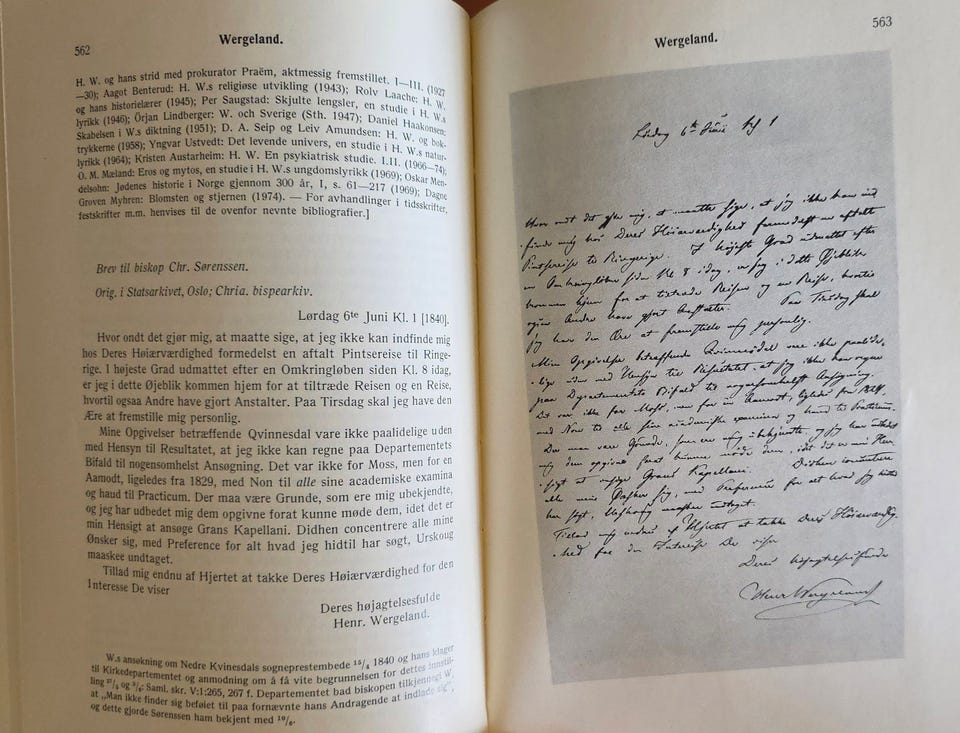 562
Wergeland.
H. W. og hans strid med prokurator Praëm, aktmessig fremstillet. I—III. (1927
—30); Aagot Benterud: H. W.s religiøse utvikling (1943); Rolv Laache: H. W.
og hans historielærer (1945); Per Saugstad: Skjulte lengsler, en studie i H. W.s
lyrikk (1946); Örjan Lindberger: W. och Sverige (Sth. 1947); Daniel Haakonsen:
Skabelsen i W.s diktning (1951); D. A. Seip og Leiv Amundsen: H. W. og bok-
trykkerne (1958); Yngvar Ustvedt: Det levende univers, en studie i H. W.s natur-
lyrikk (1964); Kristen Austarheim: H. W. En psykiatrisk studie. I.II. (1966—74);
O. M. Mæland: Eros og mytos, en studie i H. W.s ungdomslyrikk (1969); Oskar Men-
delsohn: Jødenes historie i Norge gjennom 300 år, I, s. 61—217 (1969); Dagne
Groven Myhren: Blomsten og stjernen (1974). — For avhandlinger i tidsskrifter,
festskrifter m.m. henvises til de ovenfor nevnte bibliografier.]
Brev til biskop Chr. Sørenssen.
Orig. i Statsarkivet, Oslo; Chria. bispearkiv.
Lørdag 6te Juni Kl. 1 [1840].
Hvor ondt det gjør mig, at maatte sige, at jeg ikke kan indfinde mig
hos Deres Høiærværdighed formedelst en aftalt Pintsereise til Ringe-
rige. I højeste Grad udmattet efter en Omkringløben siden Kl. 8 idag,
er jeg i dette Øjeblik kommen hjem for at tiltræde Reisen og en Reise,
hvortil ogsaa Andre have gjort Anstalter. Paa Tirsdag skal jeg have den
Ære at fremstille mig personlig.
Mine Opgivelser betræffende Qvinnesdal vare ikke paalidelige uden
med Hensyn til Resultatet, at jeg ikke kan regne paa Departementets
Bifald til nogensomhelst Ansøgning. Det var ikke for Moss, men for en
Aamodt, ligeledes fra 1829, med Non til alle sine academiske examina
og haud til Practicum. Der maa være Grunde, som ere mig ubekjendte,
og jeg har udbedet mig dem opgivne forat kunne møde dem, idet det er
min Hensigt at ansøge Grans Kapellani. Didhen concentrere alle mine
Ønsker sig, med Preference for alt hvad jeg hidtil har søgt, Urskoug
maaskee undtaget.
Tillad mig endnu af Hjertet at takke Deres Høiærværdighed for den
Interesse De viser
Deres højagtelsesfulde
Henr. Wergeland.
W.s ansøkning om Nedre Kvinesdals sogneprestembede 15/4 1840 og hans klager
til Kirkedepartementet og anmodning om å få vite begrunnelsen for dettes innstil-
ling Saml. skr. V:1:265, 267 f. Departementet bad biskopen tilkjennegi W,
at „Man ikke finder sig beføiet til paa fornævnte hans Andragende at indlade sig",
og dette gjorde Sørenssen ham bekjent med 10/6.
563
Wergeland.
Lørdag 6te Juni Kl 1
Hvor ondt det gjør mig, at maatte sige, at jeg ikke kan ind
finde mig hos Deres Høiærværdighed formedelst en aftalt
Pintsereise til Ringerige. I højeste Grad udmattet efter
en Omkringløben siden Kl 8 idag, er jeg i dette Øjeblik
kommen hjem for at tiltræde Reisen og en Reise, hvortil
ogsaa Andre have gjort Anstalter. Paa Tirsdag skal
jeg have den Ære at fremstille mig personlig.
Mine Opgivelser betræffende Qvinnesdal vare ikke paalide-
lige uden med Hensyn til Resultatet, at jeg ikke kan regne
paa Departementets Bifald til nogensomhelst Ansøgning.
Det var ikke for Moss, men for en Aamodt, ligeledes fra 1829,
med Non til alle sine academiske examina og haud til Practicum.
Der maa være Grunde, som ere mig ubekjendte, og jeg har udbedet
mig dem opgivne forat kunne møde dem, idet det er min Hen-
sigt at ansøge Grans Kapellani. Didhen concentrere
alle mine Ønsker sig, med Preference for alt hvad jeg hidtil
har søgt, Urskoug maaskee undtaget.
Tillad mig endnu af Hjertet at takke Deres Høiærværdig-
hed for den Interesse De viser
Deres højagtelsesfulde
Henr Wergeland